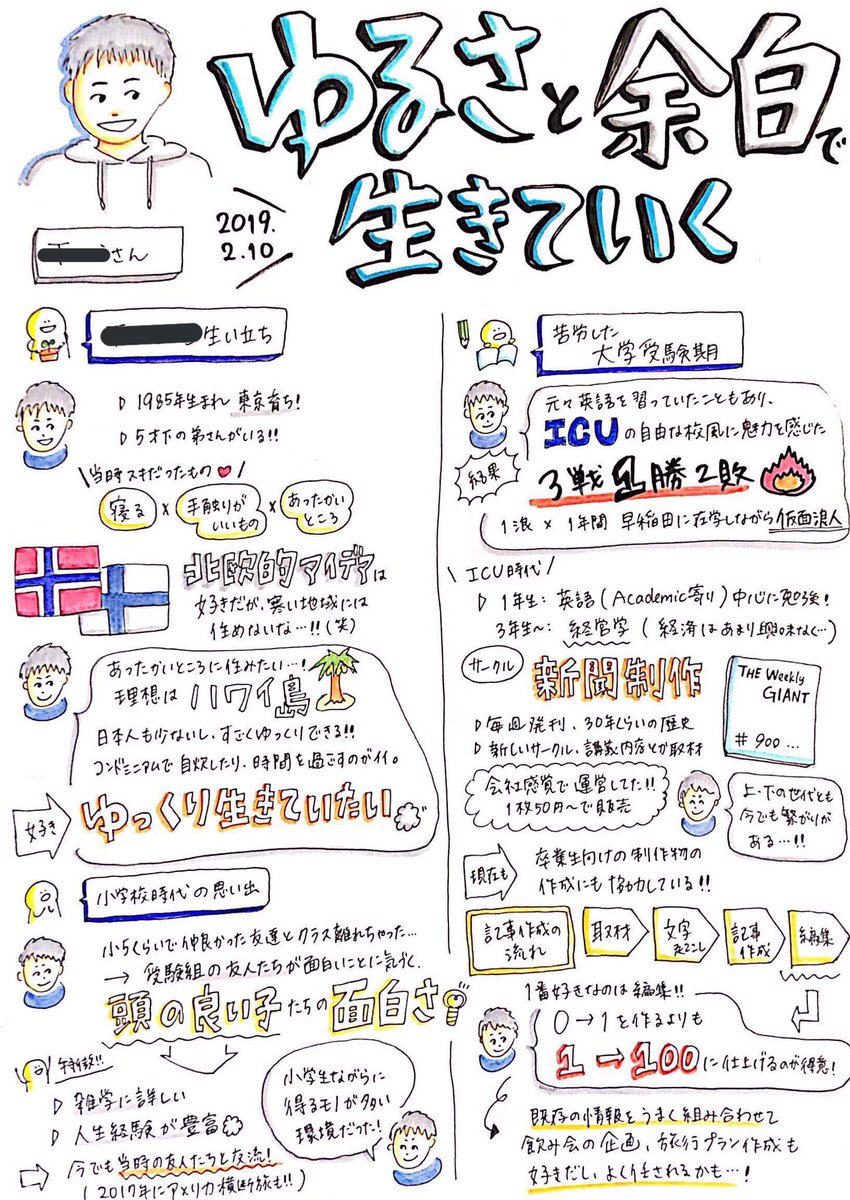 ゆるさと余白で
生きていく
2019.
2.10
さん
生い立ち
1985年生まれ 東京育ち!
5才下の弟さんがいる!!
当時スキだったもの
寝る × 手触りがいいもの × あったかいところ
北欧的マイデアは
好きだが、寒い地域には
住めないな…!!(笑)
あったかいところに住みたい…!
理想は ハワイ島
日本人も少ないし、すごくゆっくりできる!!
コンドミニアムで自炊したり、時間を過ごすのがイイ。
好き
ゆっくり生きていたい
小学校時代の思い出
小5くらいで仲良かった友達とクラス離れちゃった…
→ 受験組の友人たちが面白いことに気づく。
頭の良い子たちの面白さ
特徴!!
雑学に詳しい
人生経験が豊富
今でも当時の友人たちと交流!
(2017年にアメリカ横断旅も!!)
小学生ながらに
得るモノが多い
環境だった!
苦労した
大学受験期
元々英語を習っていたこともあり、
ICUの自由な校風に魅力を感じた
結果
3戦1勝2敗
1浪 × 1年間 早稲田に在学しながら仮面浪人
ICU時代
1年生: 英語(Academic寄り)中心に勉強!
3年生~: 経営学 (経済はあまり興味なく…)
サークル
新聞制作
THE Weekly
GIANT
#900…
毎週発刊、30年くらいの歴史
新しいサークル、講義内容とか取材
会社感覚で運営してた!!
1枚50円~で販売
上・下の世代とも
今でも繋がりが
ある…!!
現在も
卒業生向けの制作物の
作成にも協力している!!
記事作成の
流れ
取材
文字
起こし
記事
作成
編集
1番好きなのは編集!!
0→1を作るよりも
1→100に仕上げるのが得意!
既存の情報をうまく組み合わせて
飲み会の企画、旅行プラン作成も
好きだし、よく任されるかも…!